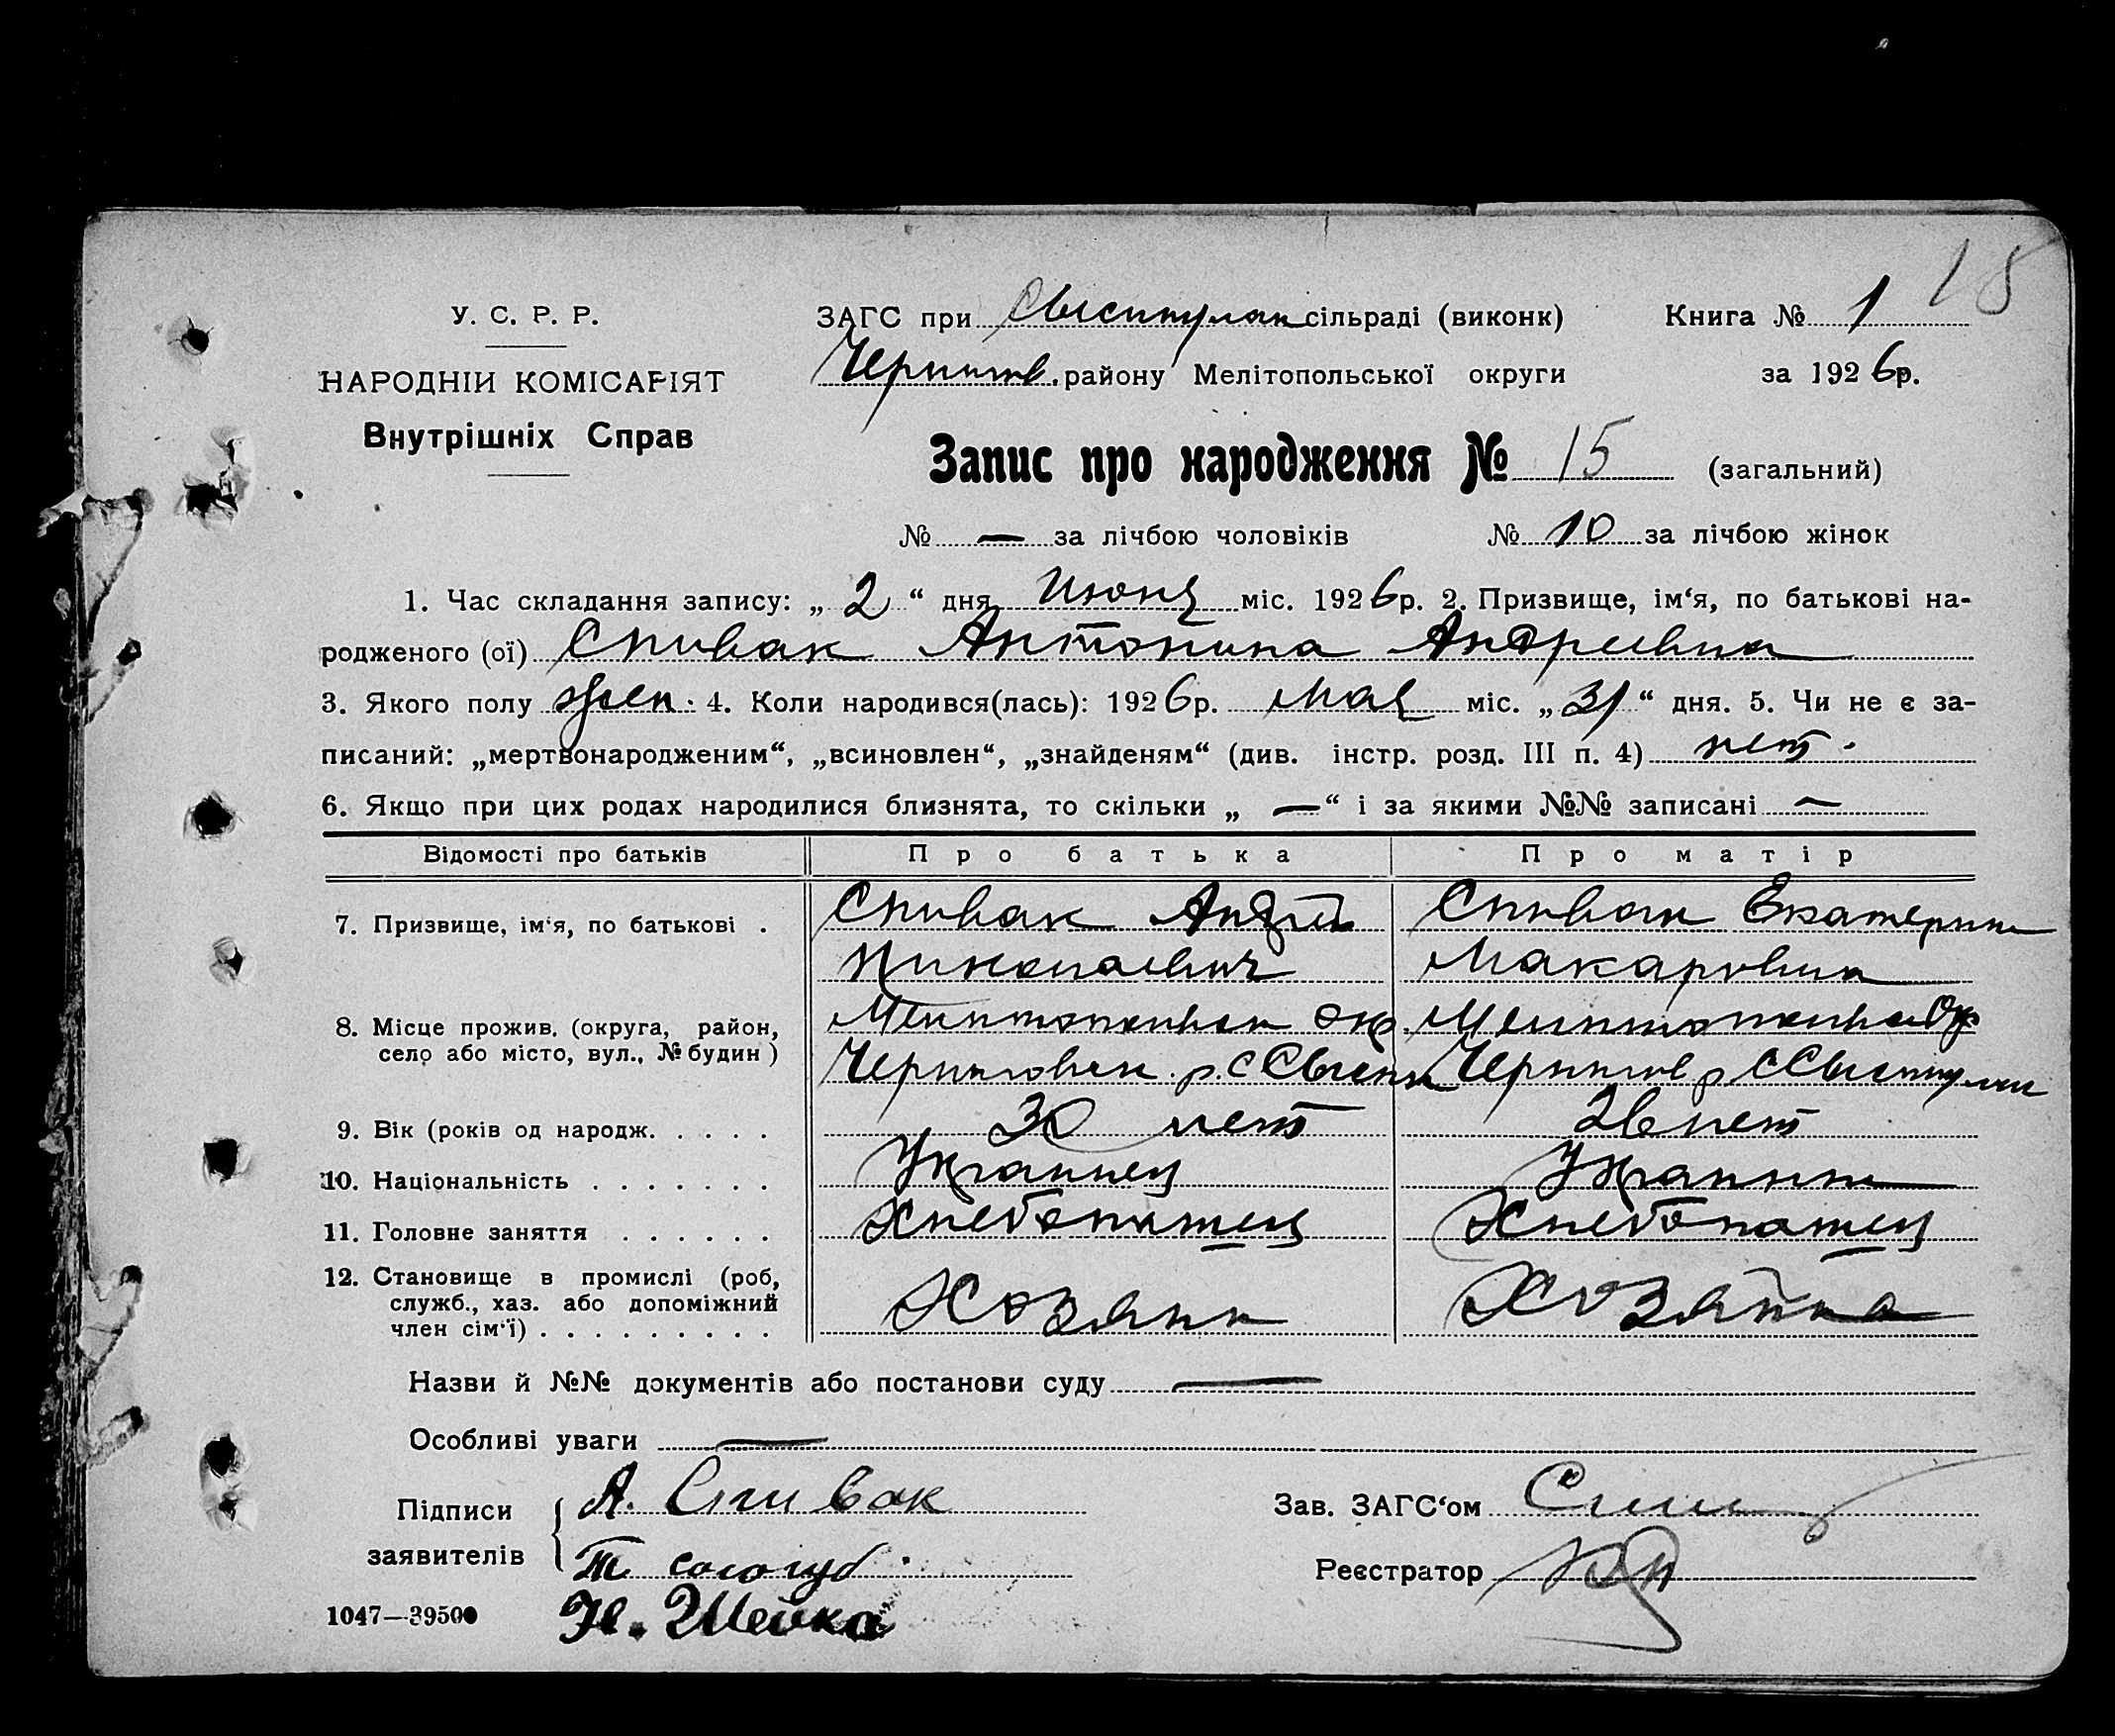 18
У. С. Р. Р.
НАРОДНІЙ КОМІСАРІЯТ
Внутрішніх Справ
ЗАГС при сільраді (виконк) Книга № 1
Чернигов. району Мелітопольської округи за 1926р.
Запис про народження № 15 (загальний)
№ — за лічбою чоловіків № 10 за лічбою жінок
1. Час складання запису: „ 2 “ дня Июня міс. 1926р. 2. Призвище, ім‘я, по батькові на-
родженого (ої) Спивак Антонина Андреевна
3. Якого полу жен. 4. Коли народився(лась): 1926р. Мая міс. „ 31 “ дня. 5. Чи не є за-
писаний: „мертвонародженим“, „всиновлен“, „знайденям“ (див. інстр. розд. III п. 4) нет.
6. Якщо при цих родах народилися близнята, то скільки „ — “ і за якими №№ записані —
Відомості про батьків Про батька Про матір
7. Призвище, ім‘я, по батькові . Спивак Андрей Спивак Екатерина
Николаевич Макаровна
8. Місце прожив. (округа, район, Мелитопольск окр. Мелитопольск Окр
село або місто, вул., № будин ) Черниговск. р. с Чернигов р с
9. Вік (років од народж. . . . . 30 лет 26 лет
10. Національність . . . . . . . Украинец Украинка
11. Головне заняття . . . . . . Хлебопашец Хлебопашец
12. Становище в промислі (роб, Хозяин Хозяйка
служб., хаз. або допоміжний
член сім‘ї) . . . . . . . . .
Назви й №№ документів або постанови суду —
Особливі уваги —
Підписи А. Спивак Зав. ЗАГС‘ом
заявителів Реєстратор
1047—39500 Н. Шейка